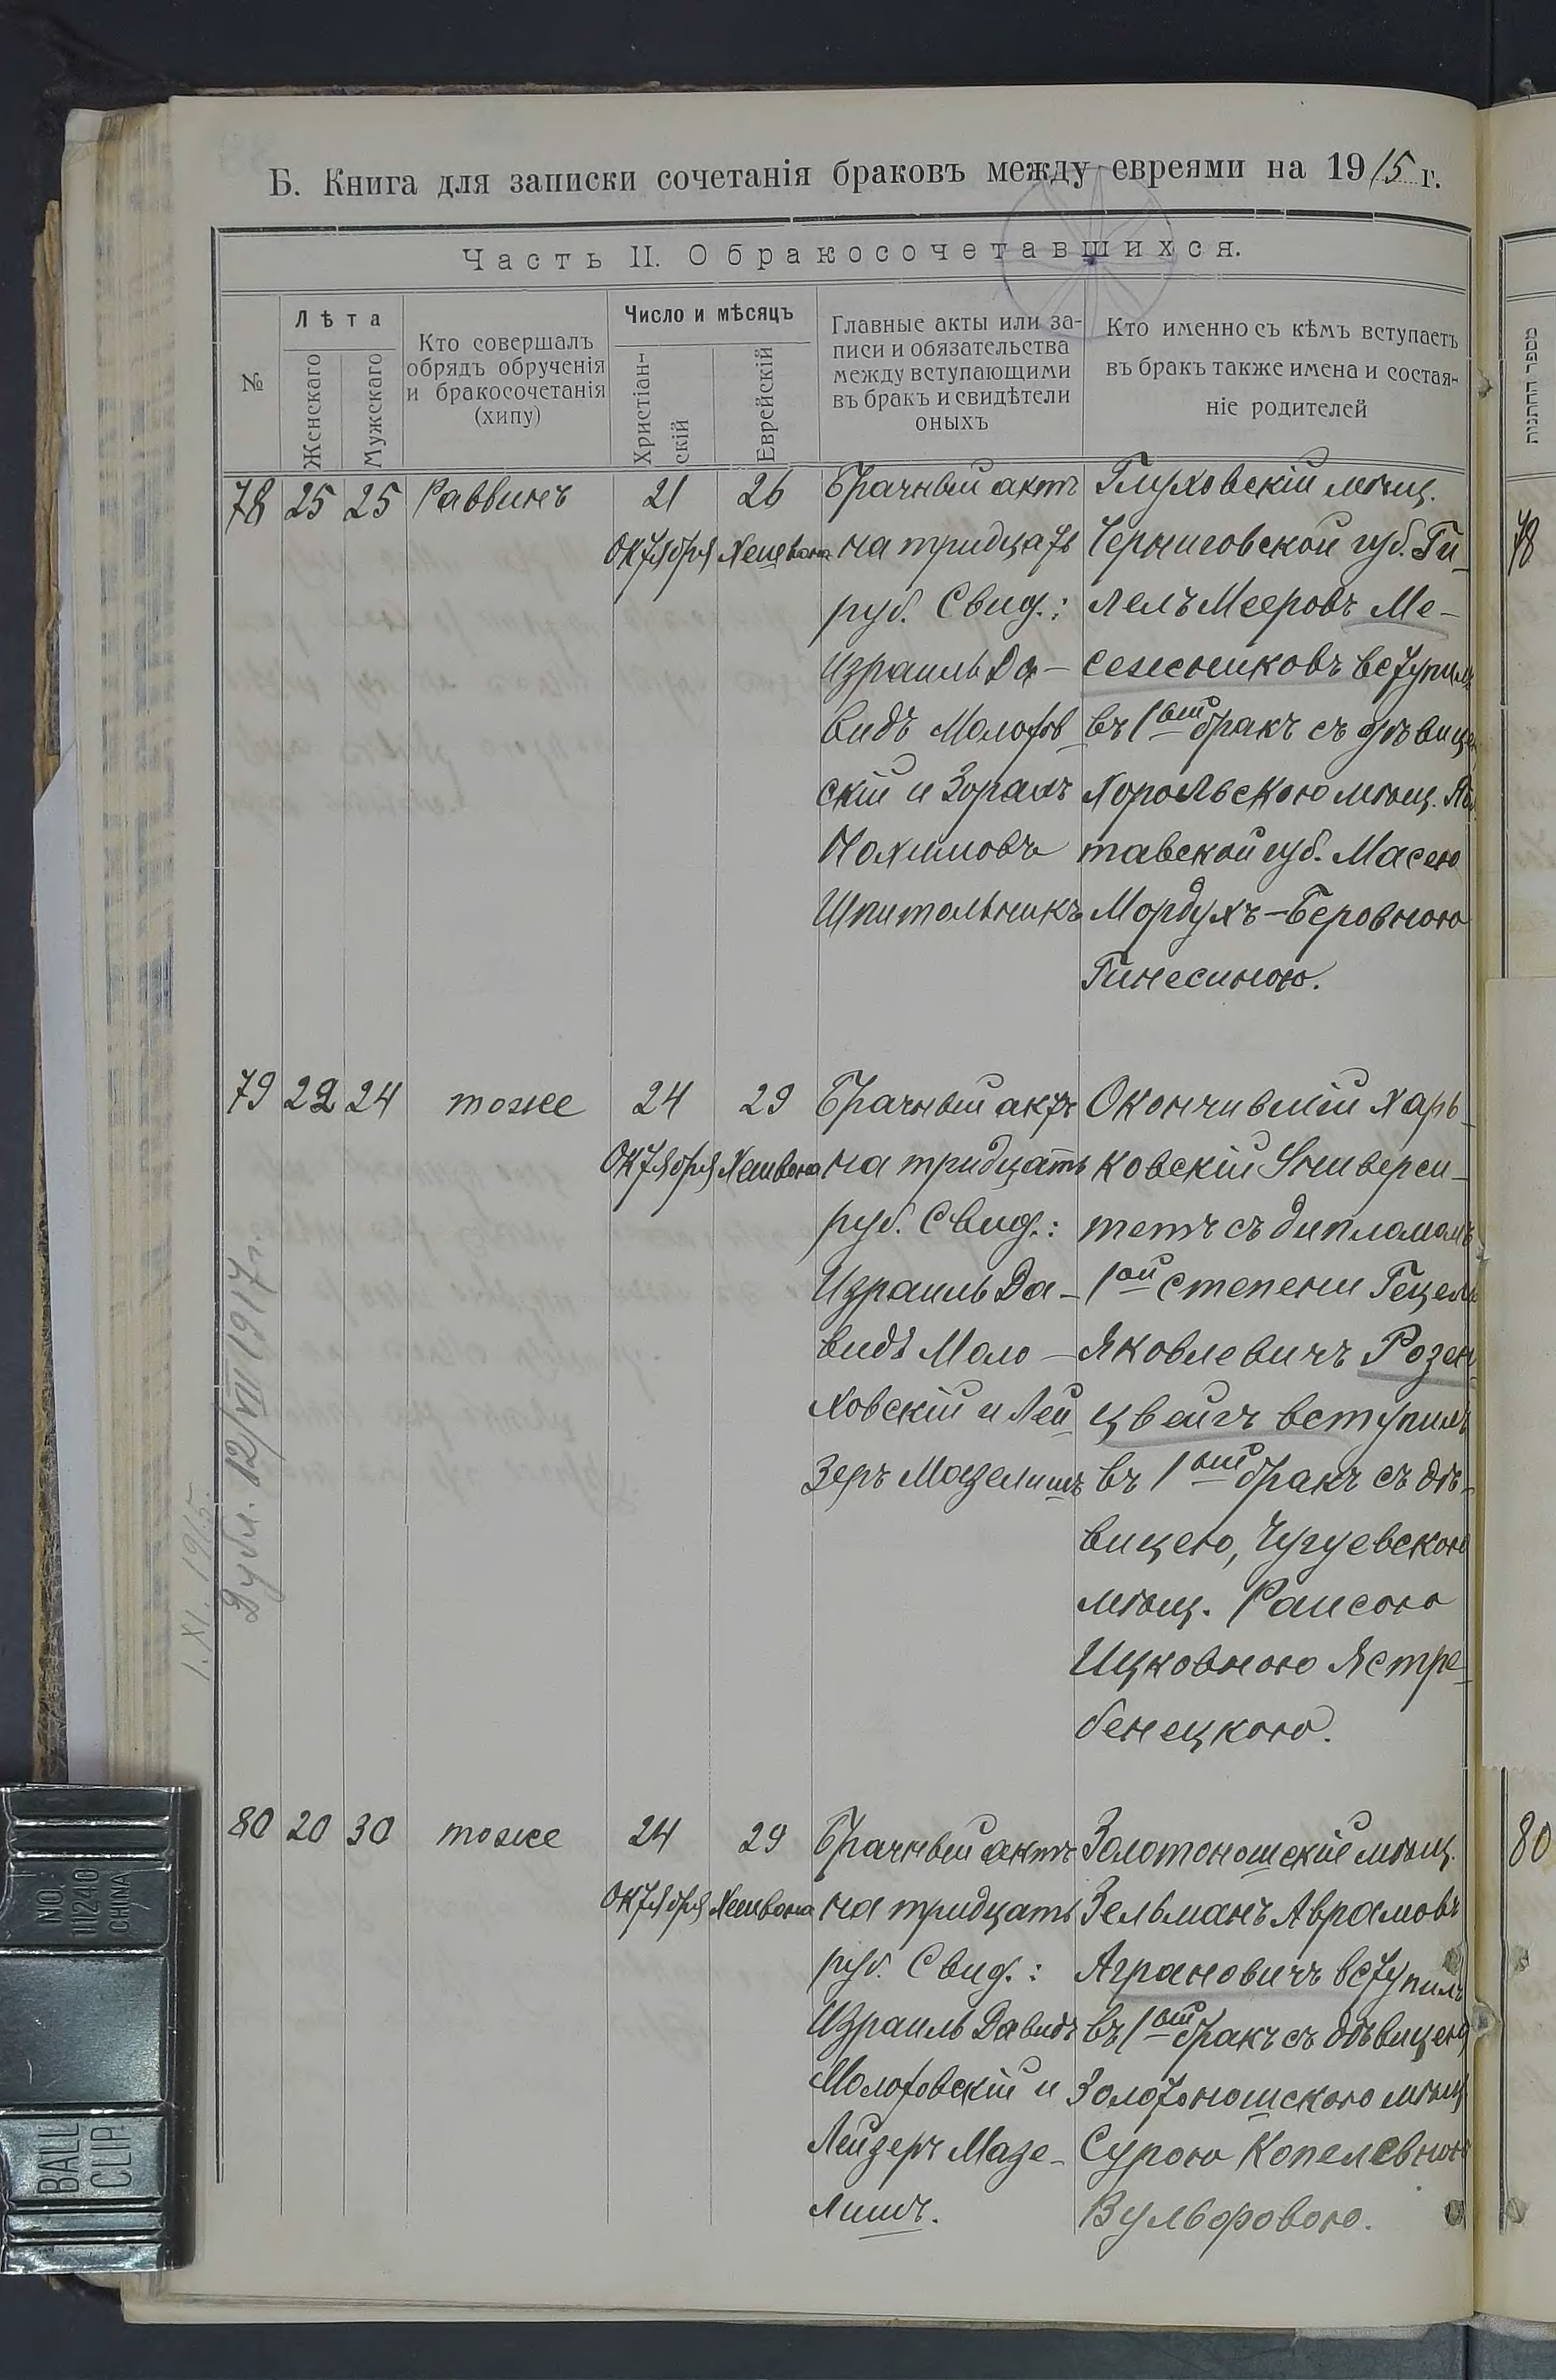 Б. Книга для записки сочетанія браковъ между евреями на 1915 г.
Часть II. О бракосочетавшихся.
№
Лѣта
Женскаго
Мужскаго
Кто совершалъ
обрядъ обрученія
и бракосочетанія
(хипу)
Число и мѣсяцъ
Христіан-
скій
Еврейскій
Главные акты или за-
писи и обязательства
между вступающими
въ бракъ и свидѣтели
оныхъ
Кто именно съ кѣмъ вступаетъ
въ бракъ также имена и состоя-
ніе родителей
78 25 25 Раввинъ
21
Октября
26
Хешвона
Брачный актъ
на тридцать
руб. Свид.:
Израиль Да-
видъ Молотов-
скій и Зорахъ
Нохимовъ
Шпитольникъ
Глуховскій мѣщ.
Черниговской губ. Ги-
лелъ Мееровъ Ме-
сежниковъ вступилъ
въ 1ый бракъ съ дѣвицею
Хорольскою мѣщ. Пол
тавской губ. Масею
Мордухъ-Беровною
Гинесиною.
79 22 24 тоже
24
Октября
29
Хешвона
Брачный актъ
на тридцать
руб. Свид.:
Израиль Да-
видъ Моло-
ховскій и Лей-
зеръ Мазелишъ
Окончившій Харь-
ковскій Универси-
тетъ съ дипломомъ
1ой степени Гецель
Яковлевичъ Розен
цвейгъ вступилъ
въ 1ый бракъ съ дѣ-
вицею, Чугуевскою
мѣщ. Раисою
Ицковною Ястре-
бенецкою.
Дубл. 12/VII 1917 г.
1. XI. 1915.
80 20 30 тоже
24
Октября
29
Хешвона
Брачный актъ
на тридцать
руб. Свид.:
Израиль Давидъ
Молотовскій и
Лейзеръ Мазе-
лишъ.
Золотоношскій мѣщ.
Зельманъ Аврамовъ
Аграновичъ вступилъ
въ 1ый бракъ съ дѣвицею
Золотоношскою мѣщ
Сурою Копелевною
Вульфовою.
מספר החתנות
78
80
NO.
11240
CHINA
BALL
CLIP